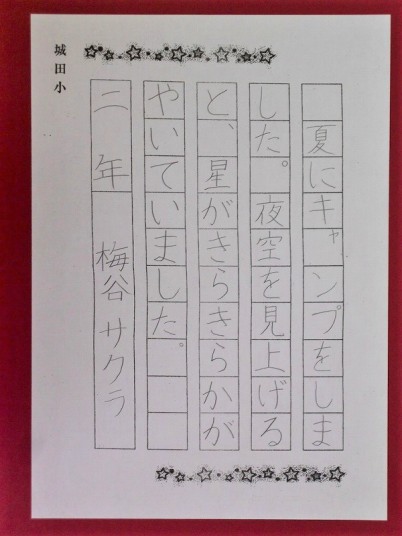 夏にキャンプをしま
した。夜空を見上げる
と、星がきらきらかが
やいていました。
二年 梅谷サクラ
城田小